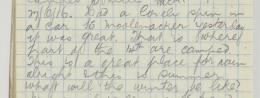 M.O.O. Had a lovely spin in
a car to modern over yesterday
it was great. That is where
part of the 1st are camped.
This is a great place for rain
alright & this is summer
what will the winter be like?